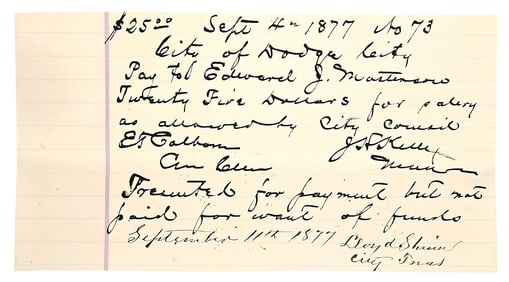 $25.00 Sept 4th 1877 No 73
City of Dodge City
Pay to Edward J. Masterson
Twenty Five Dollars for salery
as allowed by City Council
E F Colborn J H Kelly
City Clerk Mayor
Presented for payment but not
paid for want of funds
September 11th 1877 Lloyd Shinn
City Treas